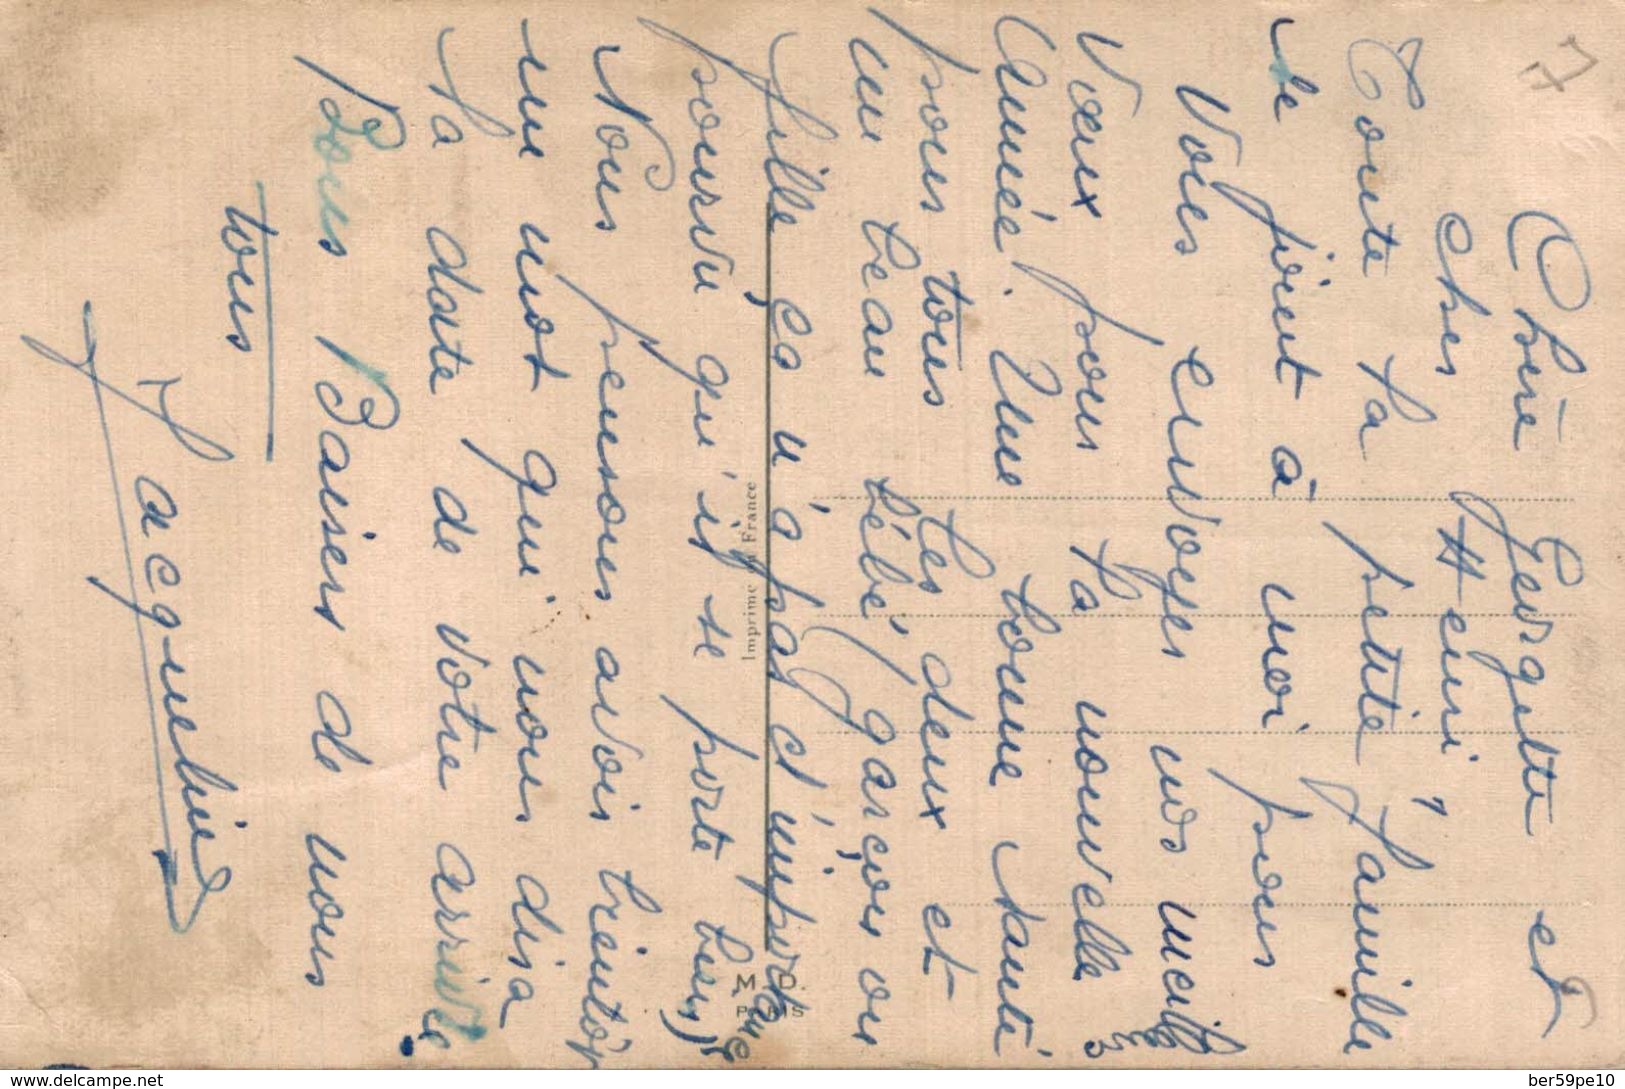 Chère Georgette et
cher Henri,
Toute la petite famille
se joint à moi pour
vous envoyer nos meilleurs
Vœux pour la nouvelle
Année. Une bonne santé
pour tous les deux et
un beau bébé, garçon ou
fille, ça n'a pas d'importance
pourvu qu'il se porte bien,
Nous pensons avoir bientôt
un mot qui nous dira
la date de votre arrivée
Bons Baisers de nous
tous
Jacqueline
Imprimé en France
M. D.
PARIS
delcampe.net
ber59pe10